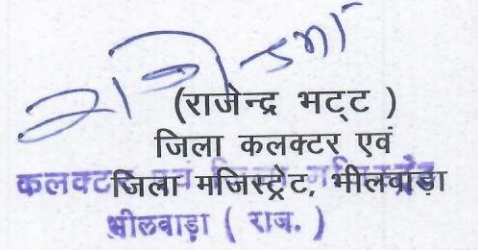 (राजेन्द्र भट्ट )
जिला कलक्टर एवं
जिला मजिस्ट्रेट, भीलवाड़ा
कलक्टर एवं
भीलवाड़ा ( राज. )